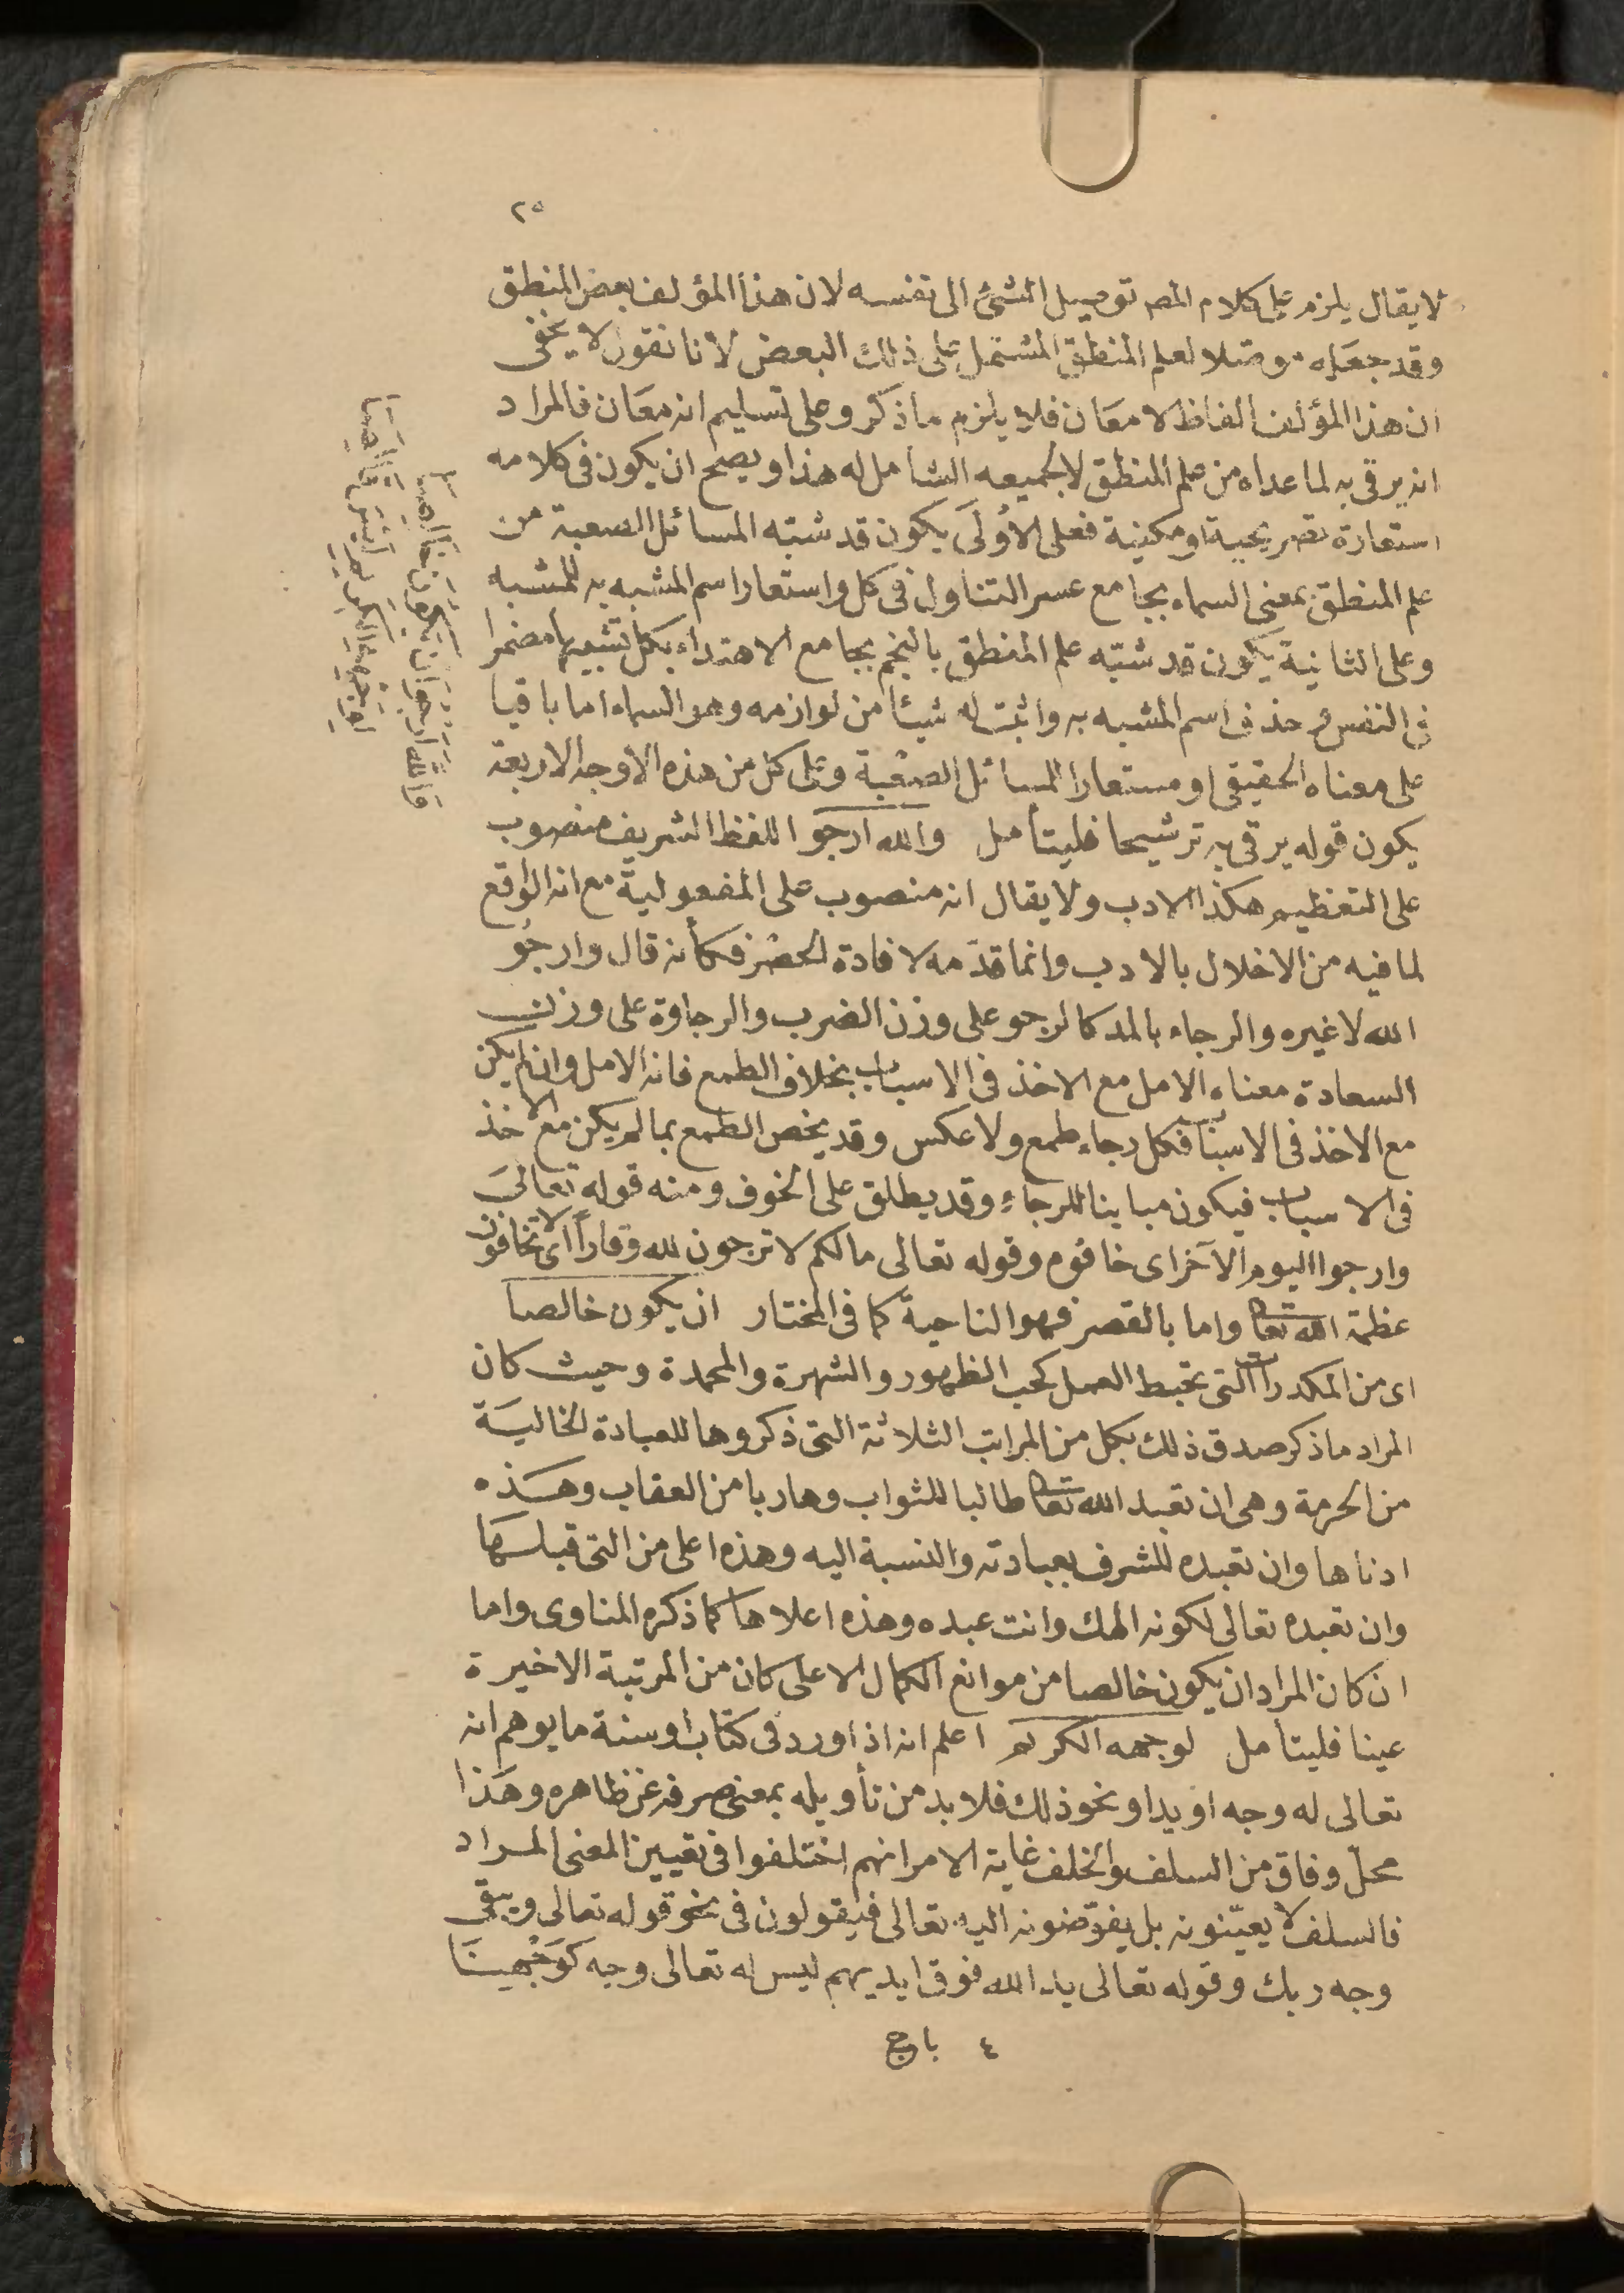 ٢٥
لا يقال يلزم على كلام المص توصيل الشئ الى نفسه لان هذا المؤلف بعض المنطق
وقد جعله موصلا لعلم المنطق المشتمل على ذلك البعض لانا نقول لا يخفى
ان هذا المؤلف الفاظ لا معان فلا يلزم ما ذكر وعلى تسليم انه معان فالمراد
انه يرقى به لما عداه من علم المنطق لا لجميعه الشامل له هذا ويصح ان يكون فى كلامه
استعارة تصريحية او مكنية فعلى الاولى يكون قد شبه المسائل الصعبة من
علم المنطق بمعنى السماء بجامع عسر التناول فى كل واستعار اسم المشبه به للمشبه
وعلى الثانية يكون قد شبه علم المنطق بالنجم بجامع الاهتداء بكل تشبيها مضمرا
فى النفس وحذف اسم المشبه به واثبت له شيئا من لوازمه وهو السماء اما باقيا
على معناه الحقيقى او مستعارا للمسائل الصعبة وعلى كل من هذه الاوجه الاربعة
يكون قوله يرقى به ترشيحا فليتأمل والله ارجوا اللفظ الشريف منصوب
على التعظيم هكذا الادب ولا يقال انه منصوب على المفعولية مع انه الواقع
لما فيه من الاخلال بالادب وانما قدمه لافادة الحصر فكأنه قال وارجو
الله لا غيره والرجاء بالمد كالرجو على وزن الضرب والرجاوة على وزن
السعادة معناه الامل مع الاخذ فى الاسباب بخلاف الطمع فانه الامل وان لم يكن
مع الاخذ فى الاسباب فكل رجاء طمع ولا عكس وقد يخص الطمع بما لم يكن مع الاخذ
فى الاسباب فيكون مباينا للرجاء وقد يطلق على الخوف ومنه قوله تعالى
وارجوا اليوم الآخر اى خافوه وقوله تعالى مالكم لا ترجون لله وقارا اى لا تخافون
عظمة الله تعا واما بالقصر فهو الناحية كما فى المختار ان يكون خالصا
اى من المكدرات التى تحبط العمل كحب الظهور والشهرة والمحمدة وحيث كان
المراد ما ذكر صدق ذلك بكل من المراتب الثلاثة التى ذكروها للعبادة الخالية
من الحرمة وهى ان تعبد الله تعا طالبا للثواب وهاربا من العقاب وهذه
ادناها وان تعبده للشرف بعبادته والنسبة اليه وهذه اعلى من التى قبلها
وان تعبده تعالى لكونه الهك وانت عبده وهذه اعلاها كما ذكره المناوى واما
ان كان المراد ان يكون خالصا من موانع الكمال الاعلى كان من المرتبة الاخيرة
عينا فليتأمل لوجهه الكريم اعلم انه اذا ورد فى كتاب او سنة ما يوهم انه
تعالى له وجه او يد او نحو ذلك فلا بد من تأويله بمعنى صرفه عن ظاهره وهذا
محل وفاق من السلف والخلف غاية الامر انهم اختلفوا فى تعيين المعنى المراد
فالسلف لا يعينونه بل يفوضونه اليه تعالى فيقولون فى نحو قوله تعالى ويبقى
وجه ربك وقوله تعالى يد الله فوق ايديهم ليس له تعالى وجه كوجهنا
٤ باج
والله ارجو ان يكون خالصا
لوجهه الكريم ليس قالصا